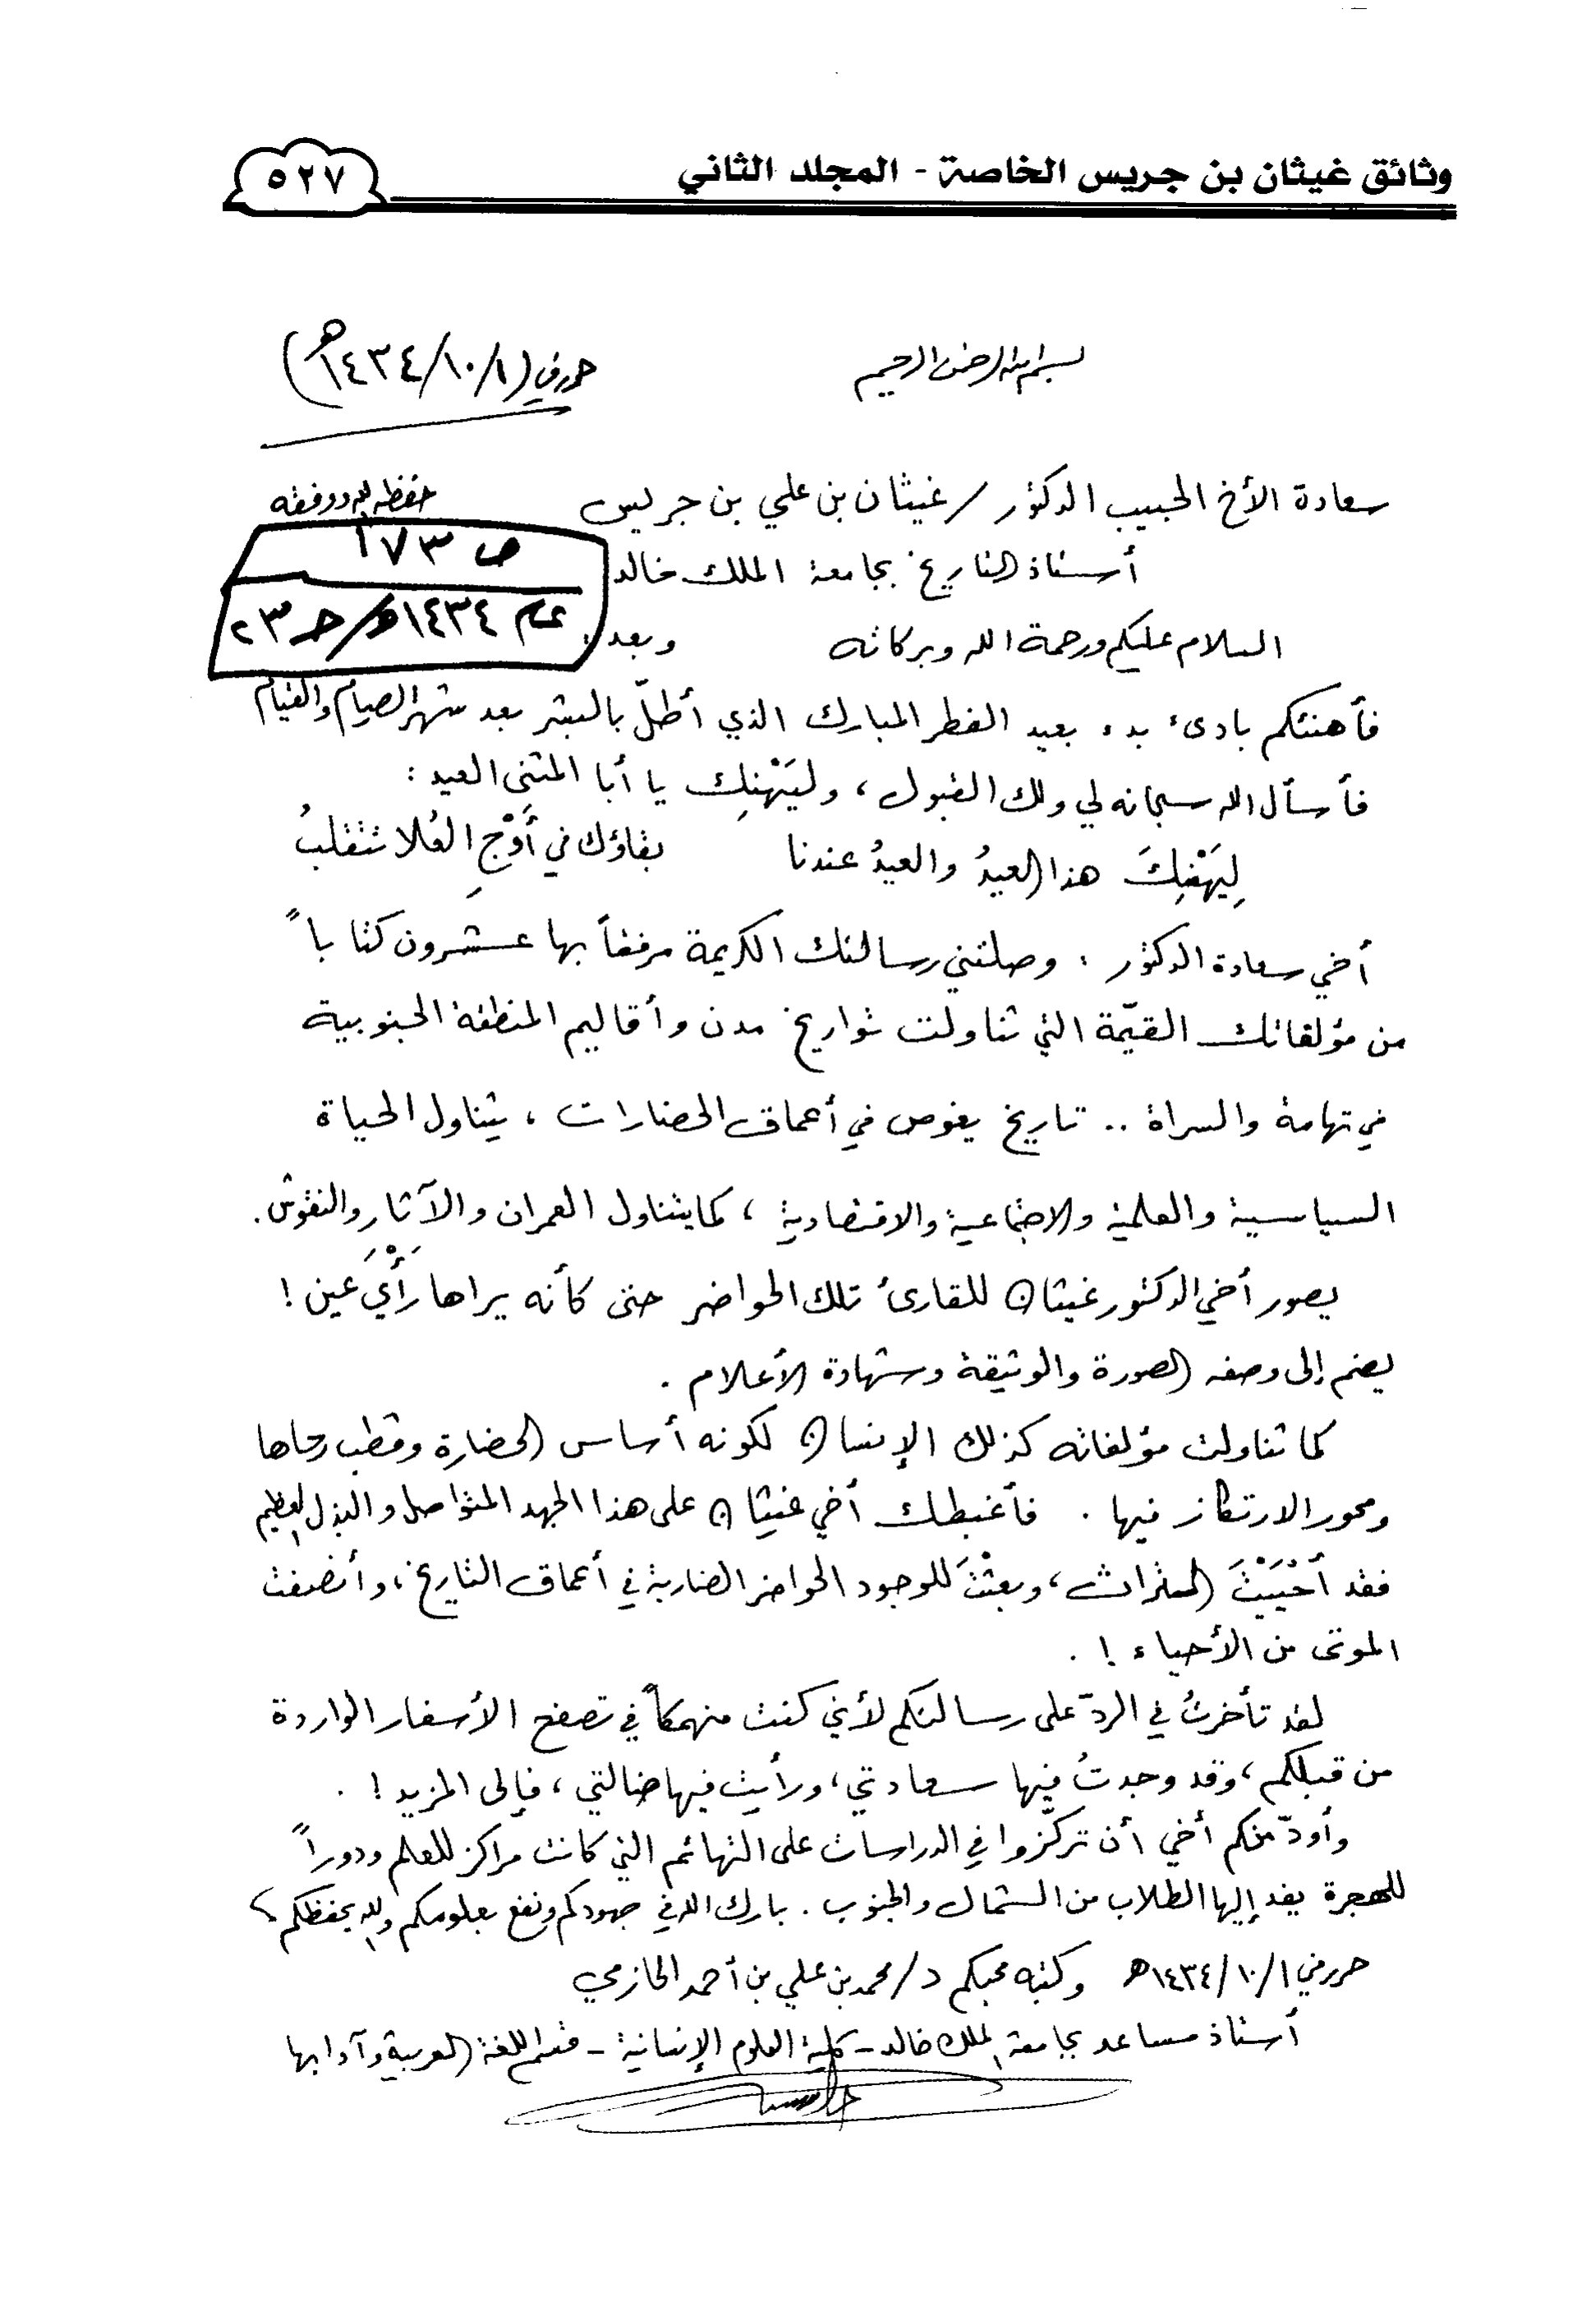 وثائق غيثان بن جريس الخاصة - المجلد الثاني
٥٢٧
بسم الله الرحمن الرحيم
حرر في (١٤٣٤/١٠/١هـ)
سعادة الأخ الحبيب الدكتور / غيثان بن علي بن جريس حفظه الله ووفقه
ص ١٧٣
أستاذ التاريخ بجامعة الملك خالد
عام ١٤٣٤هـ/ جـ ٢٣
السلام عليكم ورحمة الله وبركاته وبعد:
فأهنئكم بادئ بدء بعيد الفطر المبارك الذي أطلّ بالبشر بعد شهر الصيام والقيام
فأسأل الله سبحانه لي ولك القبول، وليَهْنِك يا أبا المثنى العيد:
لِيَهْنِكَ هذا العيدُ والعيدُ عندنا بقاؤك في أَوْجِ العُلا تتقلبُ
أخي سعادة الدكتور: وصلتني رسالتك الكريمة مرفقاً بها عشرون كتاباً
من مؤلفاتك القيّمة التي تناولت تواريخ مدن وأقاليم المنطقة الجنوبية
في تهامة والسراة .. تاريخ يغوص في أعماق الحضارات، يتناول الحياة
السياسية والعلمية والاجتماعية والاقتصادية، كما يتناول العمران والآثار والنقوش.
يصور أخي الدكتور غيثان للقارئ تلك الحواضر حتى كأنه يراها رَأْيَ عين!
يضم إلى وصفه الصورة والوثيقة وشهادة الأعلام.
كما تناولت مؤلفاته كذلك الإنسان لكونه أساس الحضارة وقطب رحاها
ومحور الارتكاز فيها. فأغبطك أخي غيثان على هذا الجهد المتواصل والبذل العظيم
فقد أحْيَيْتَ التراث، وبعثْتَ للوجود الحواضر الضاربة في أعماق التاريخ، وأنصفت
الموتى من الأحياء!.
لقد تأخرتُ في الردّ على رسالتكم لأني كنت منهمكاً في تصفح الأسفار الواردة
من قبلكم، وقد وجدتُ فيها سعادتي، ورأيت فيها ضالتي، فإلى المزيد!.
وأودّ منكم أخي أن تركّزوا في الدراسات على التهائم التي كانت مراكز للعلم ودوراً
للهجرة يفد إليها الطلاب من الشمال والجنوب. بارك الله في جهودكم ونفع بعلومكم والله يحفظكم،
حرر في ١٤٣٤/١٠/١هـ وكتبه محبكم د/محمد بن علي بن أحمد الحازمي
أستاذ مساعد بجامعة الملك خالد - كلية العلوم الإنسانية - قسم اللغة العربية وآدابها